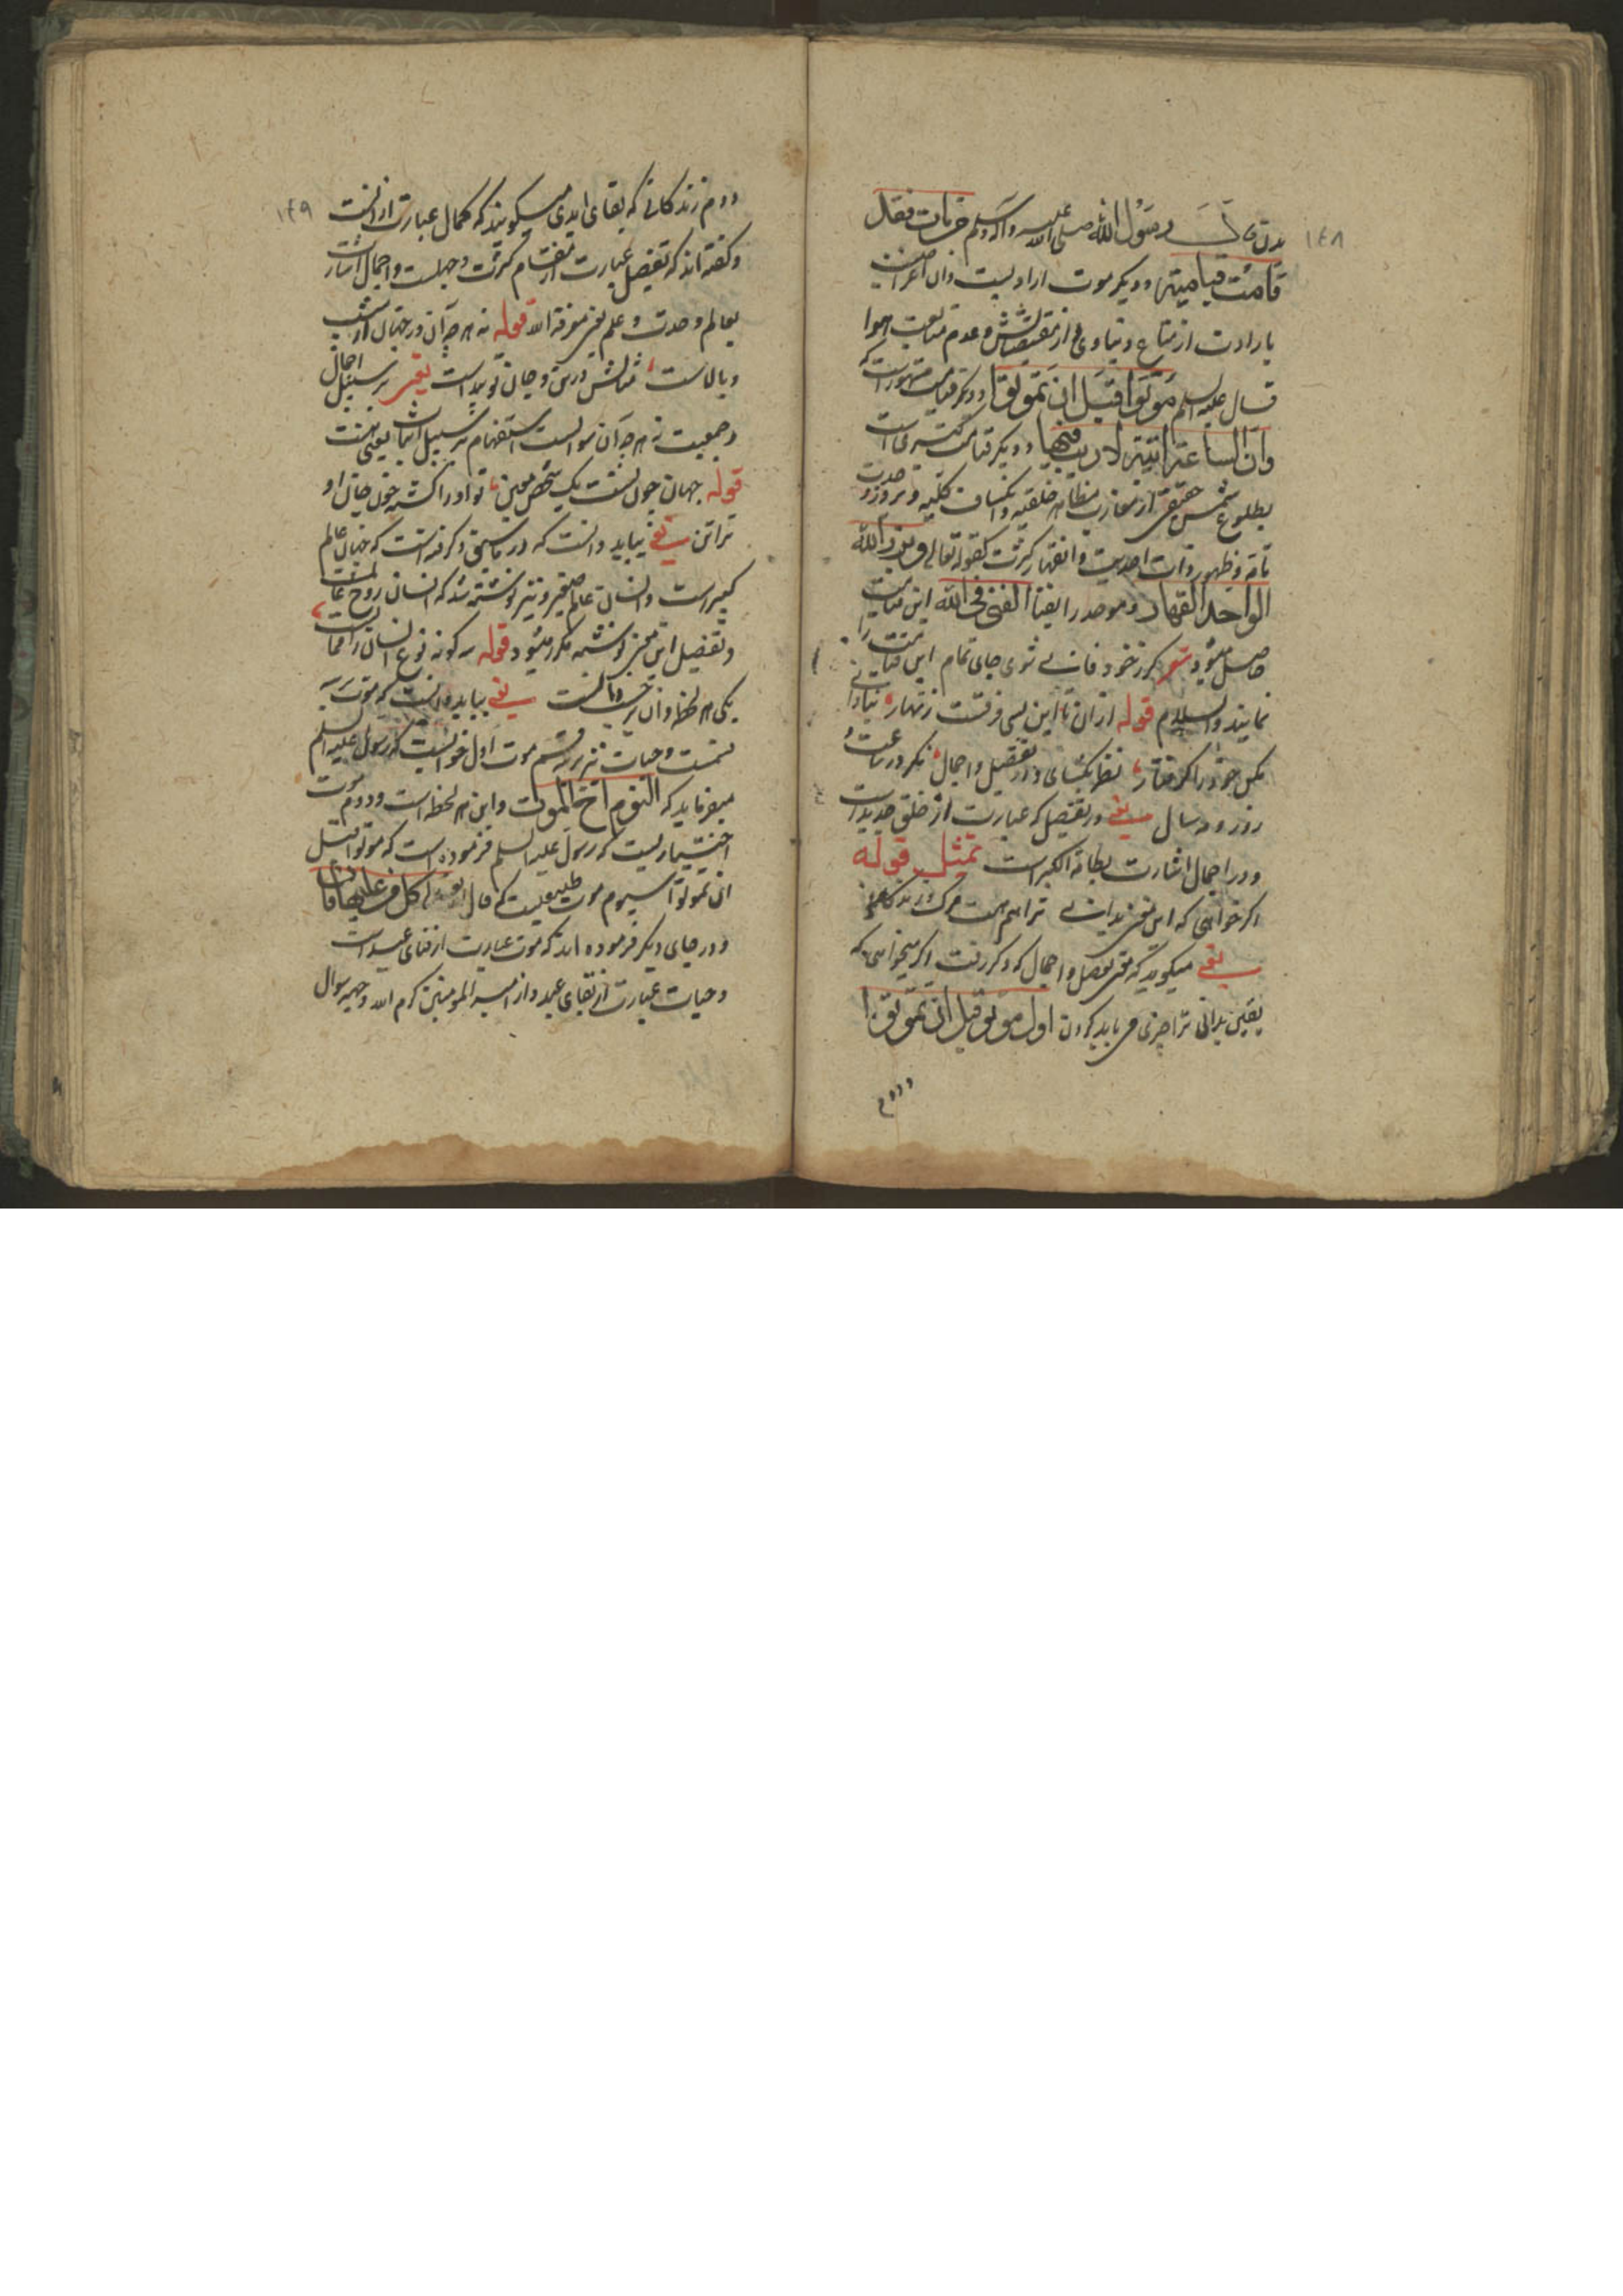 ١٤٨
بدن قال رسول الله صلی الله علیه وآله وسلم من مات فقد
قامت قیامته و دیگر موت ارادیست و آن اعراضیست
بارادت از متاع دنیاوی و از مقتضیاتش و عدم متابعت هوا
قال علیه السلم موتوا قبل ان تموتوا و دیگر قیامت مشهور است که
وان الساعة اتیة لا ریب فیها و دیگر قیامت کبری است
بطلوع شمس حقیقی از مغارب مظاهر خلقیه و انکشاف کلیه و بروز وحدت
تامه و ظهور ذات احدیت و انقهار کثرت کقوله تعالی و برزوا لله
الواحد القهار و موحد را بفناء الفنی فی الله این قیامت
حاصل میشود شعر گر ز خود فانی شوی جای تمام این قیامت را
نمایند والسلام قوله ازان تا این بسی فرقست زنهار بنادانی
مکن خود را گرفتار نظر بگشای در تفصیل و اجمال نگر در ساعت و
روز و مه سال یعنی در تفصیل که عبارت از خلق جدید است
و در اجمال اشارت بطامة الکبراست تمثیل قوله
اگر خواهی که این معنی بدانی ترا هم هست مرگ و زندگانی
یعنی میگوید که معنی تفصیل و اجمال که ذکر رفت اگر میخواهی که
یقین بدانی ترا چیزی می باید کردن اول موتوا قبل ان تموتوا
و دوم
١٤٩
دوم زندگانی که بقای ابدی میگویند که کمال عبارت ازانست
و گفته اند که تفصیل عبارت از انقسام کثرت و جهلست و اجمال اشارت
بعالم وحدت و علم یعنی معرفة الله قوله نه هر چه آن در جهان از شیب
و بالاست مثالش در تن و جان تو پیداست یعنی بر سبیل اجمال
و جمعیت نه هر چه آن سوالست استفهام بر سبیل اثبات یعنی هست
قوله جهان چون تست یک شخص معین تو او را گشته چون جان او
ترا تن یعنی بباید دانست که در ماسبق ذکر رفته است که جهان عالم
کبیر است و انسان عالم صغیر و نیز نوشته شد که انسان روح عالمست
و تفصیل این سخن نوشته مکرر میشود قوله سه گونه نوع انسان را ممات است
یکی هر لحظه و آن بر حسب ذاتست یعنی بباید دانست که موت بر سه
قسمت و حیات نیز بر سه قسم موت اول خوابست که رسول علیه السلم
میفرماید که النوم اخ الموت و این هر لحظه است و دوم موت
اختیاریست که رسول علیه السلم فرموده است که موتوا قبل
ان تموتوا سیوم موت طبیعیست که قال تعالی کل من علیها فان
و در جای دیگر فرموده اند که موت عبارت از فنای عبد است
و حیات عبارت از بقای عبد و از امیر المومنین کرم الله وجهه سوال